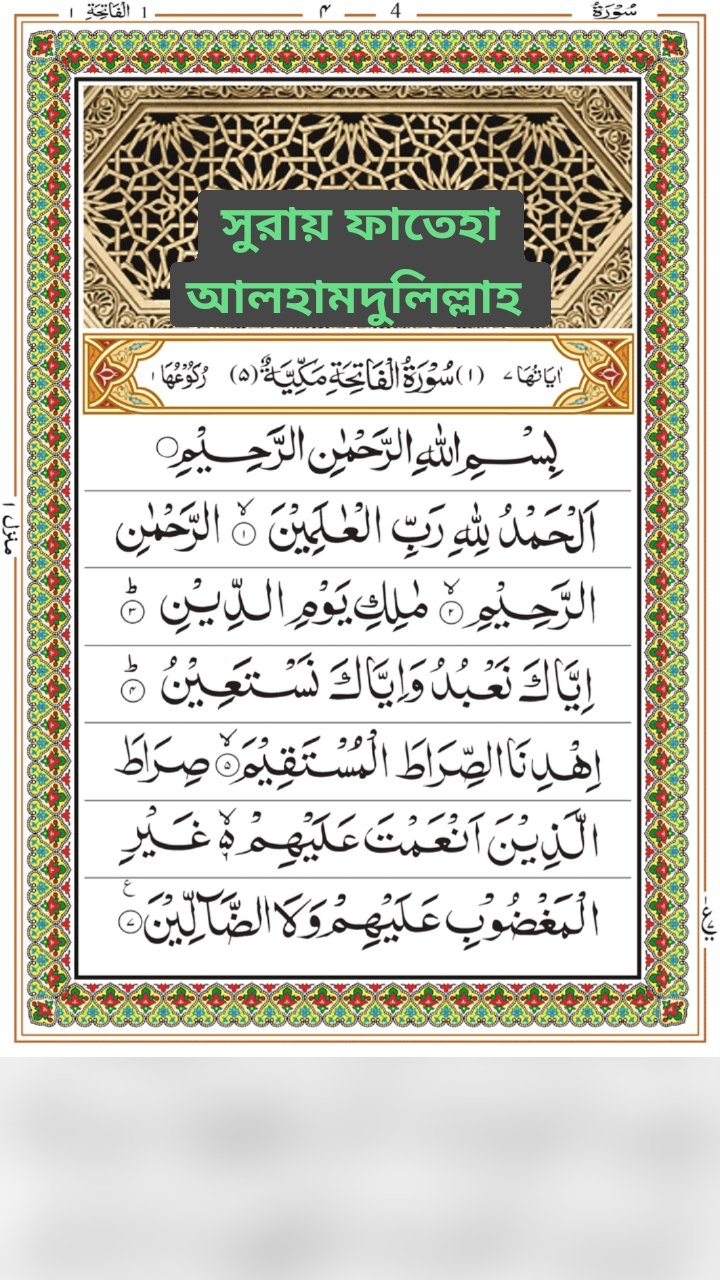 سُوْرَةُ 4 ۴ 1 اَلْفَاتِحَة ١
সুরায় ফাতেহা
আলহামদুলিল্লাহ
اٰيَاتُهَا ٧ (١) سُوْرَةُ الْفَاتِحَةِ مَكِّيَّةٌ (٥) رُكُوْعُهَا ١
بِسْمِ اللهِ الرَّحْمٰنِ الرَّحِيْمِ
اَلْحَمْدُ لِلّٰهِ رَبِّ الْعٰلَمِيْنَ ۙ ١ الرَّحْمٰنِ
الرَّحِيْمِ ۙ ٢ مٰلِكِ يَوْمِ الدِّيْنِ ؕ ٣
اِيَّاكَ نَعْبُدُ وَاِيَّاكَ نَسْتَعِيْنُ ؕ ٤
اِهْدِنَا الصِّرَاطَ الْمُسْتَقِيْمَ ۙ ٥ صِرَاطَ
الَّذِيْنَ اَنْعَمْتَ عَلَيْهِمْ ۙ۬ ە غَيْرِ
الْمَغْضُوْبِ عَلَيْهِمْ وَلَا الضَّآلِّيْنَ ٧ ع
منزل ١